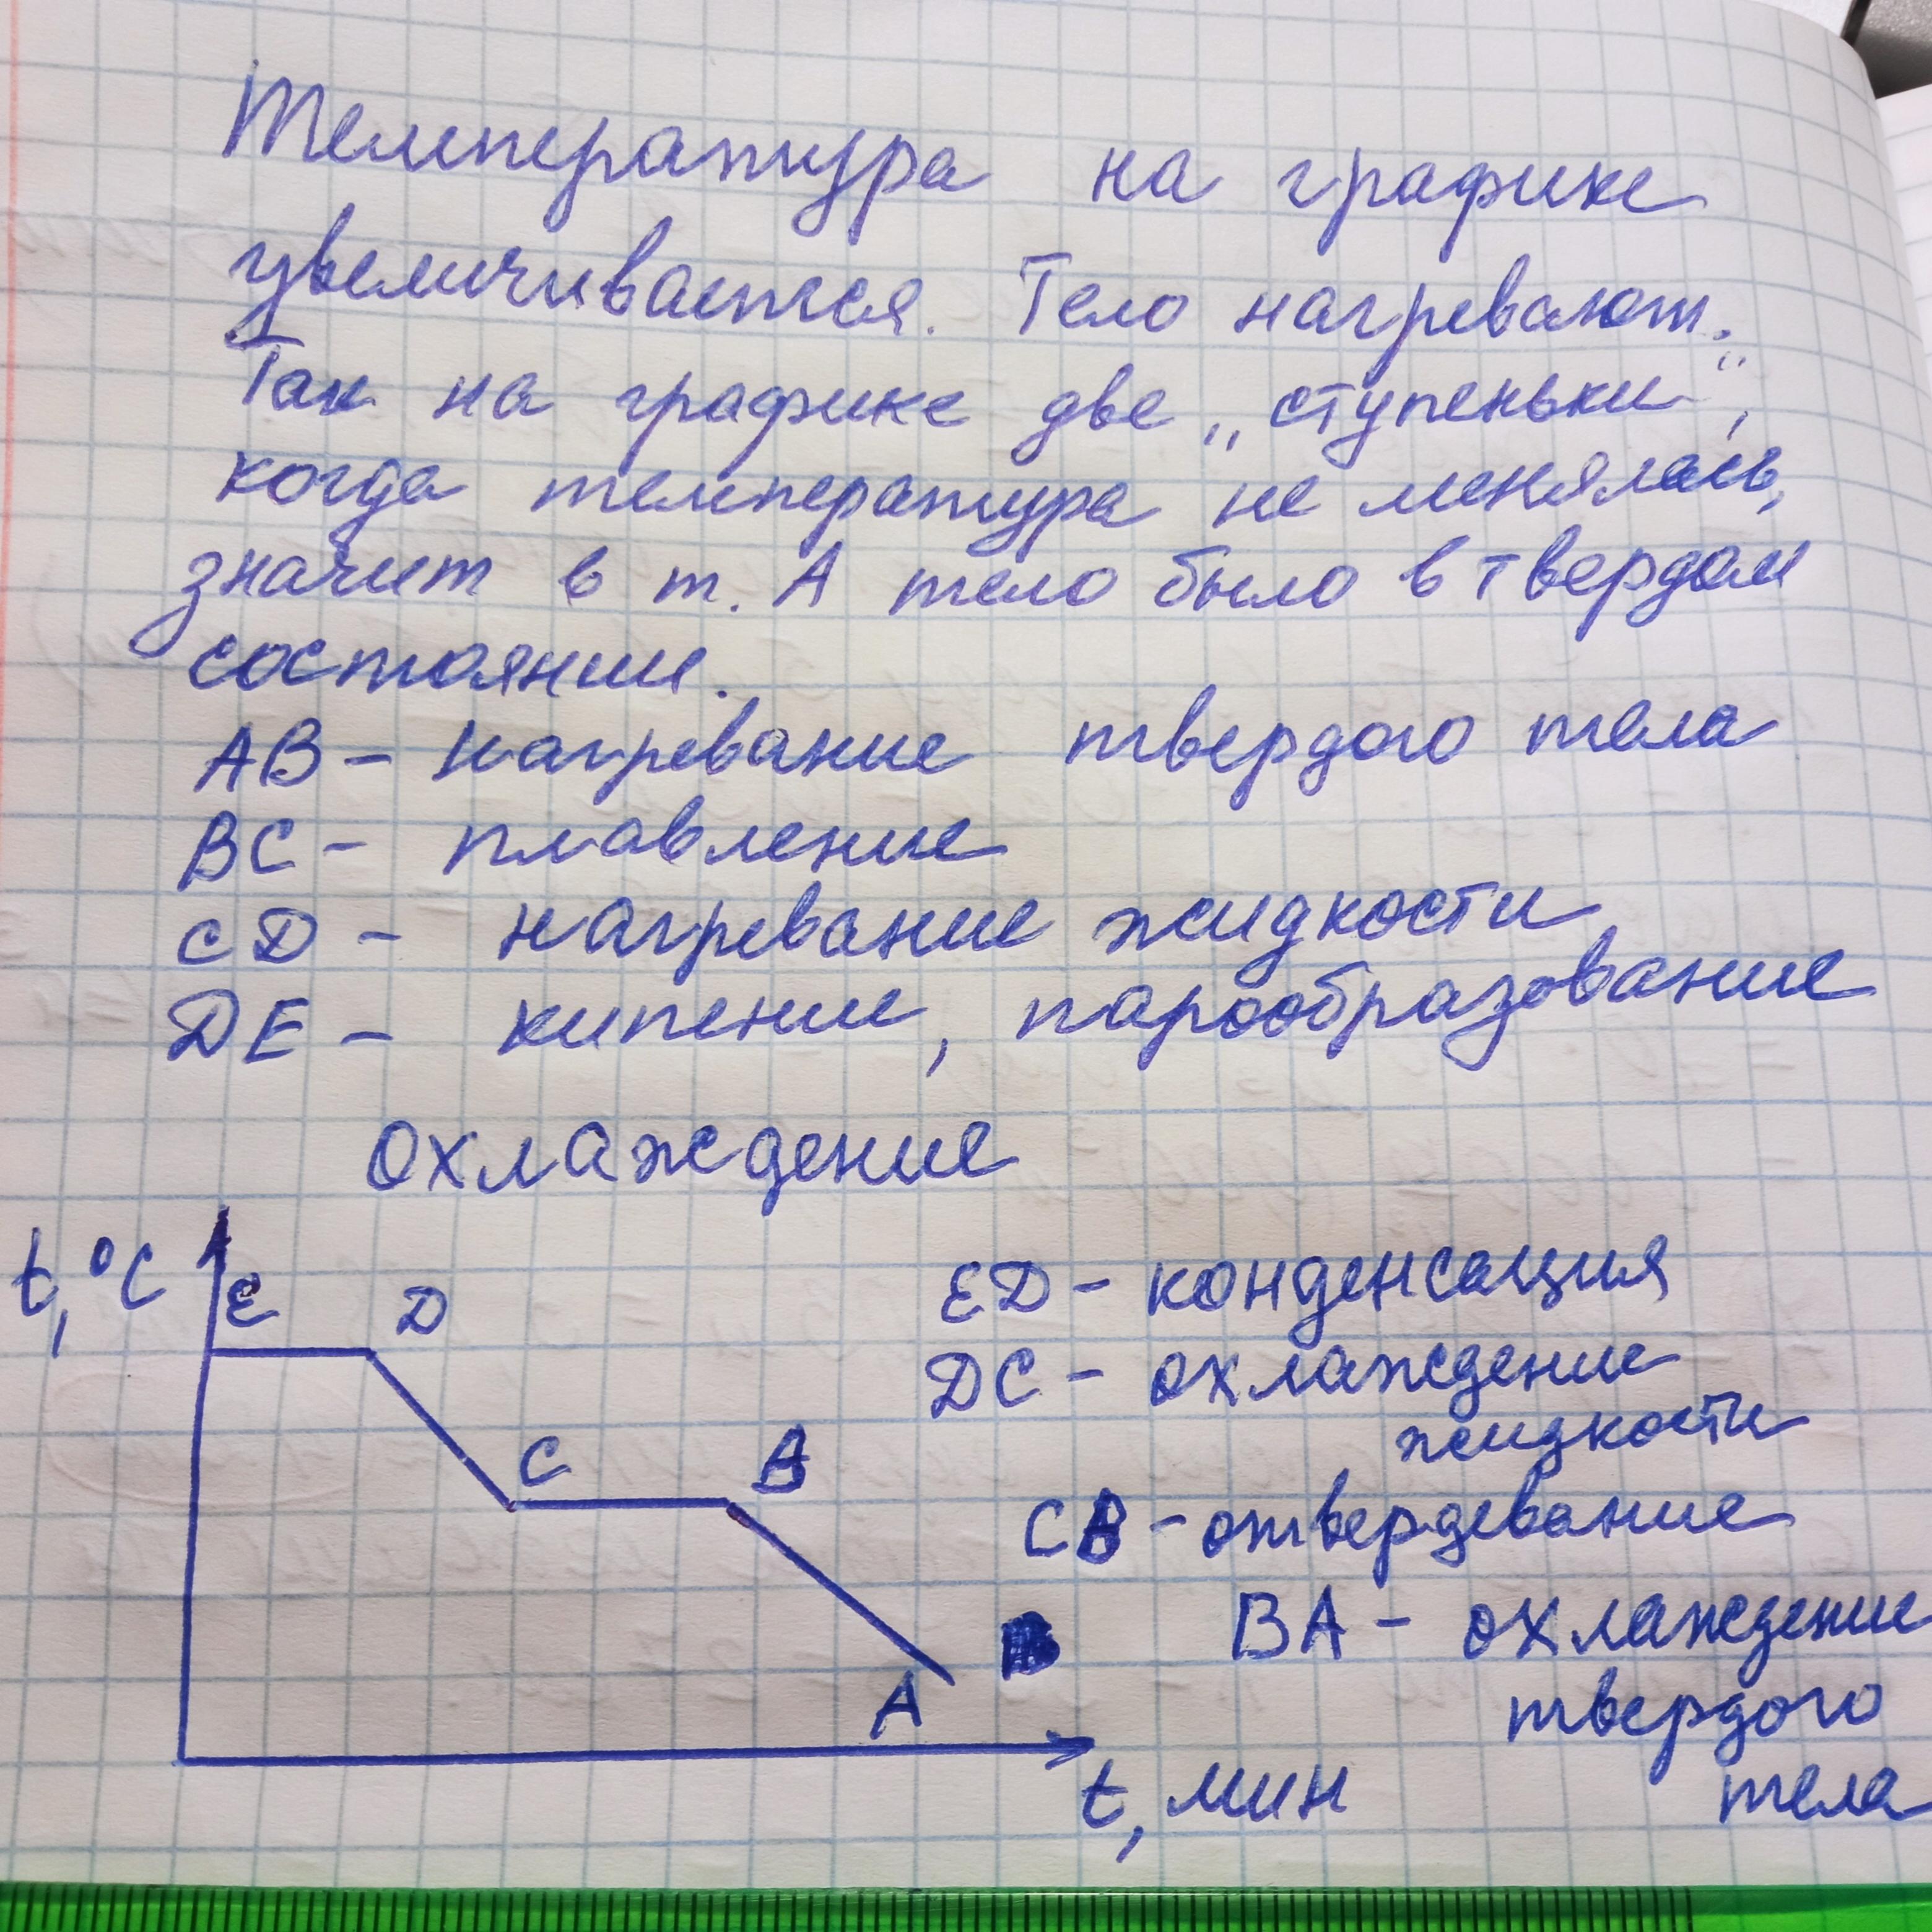 Температура на графике
увеличивается. Тело нагревают.
Так на графике две „ступеньки",
когда температура не менялась,
значит в т. А тело было в твердом
состоянии.
АВ - нагревание твердого тела
ВС - плавление
CD - нагревание жидкости
DE - кипение, парообразование
охлаждение
t, °C
E
D
C
B
A
t, мин
ED - конденсация
DC - охлаждение
жидкости
CB - отвердевание
BA - охлаждение
твердого
тела